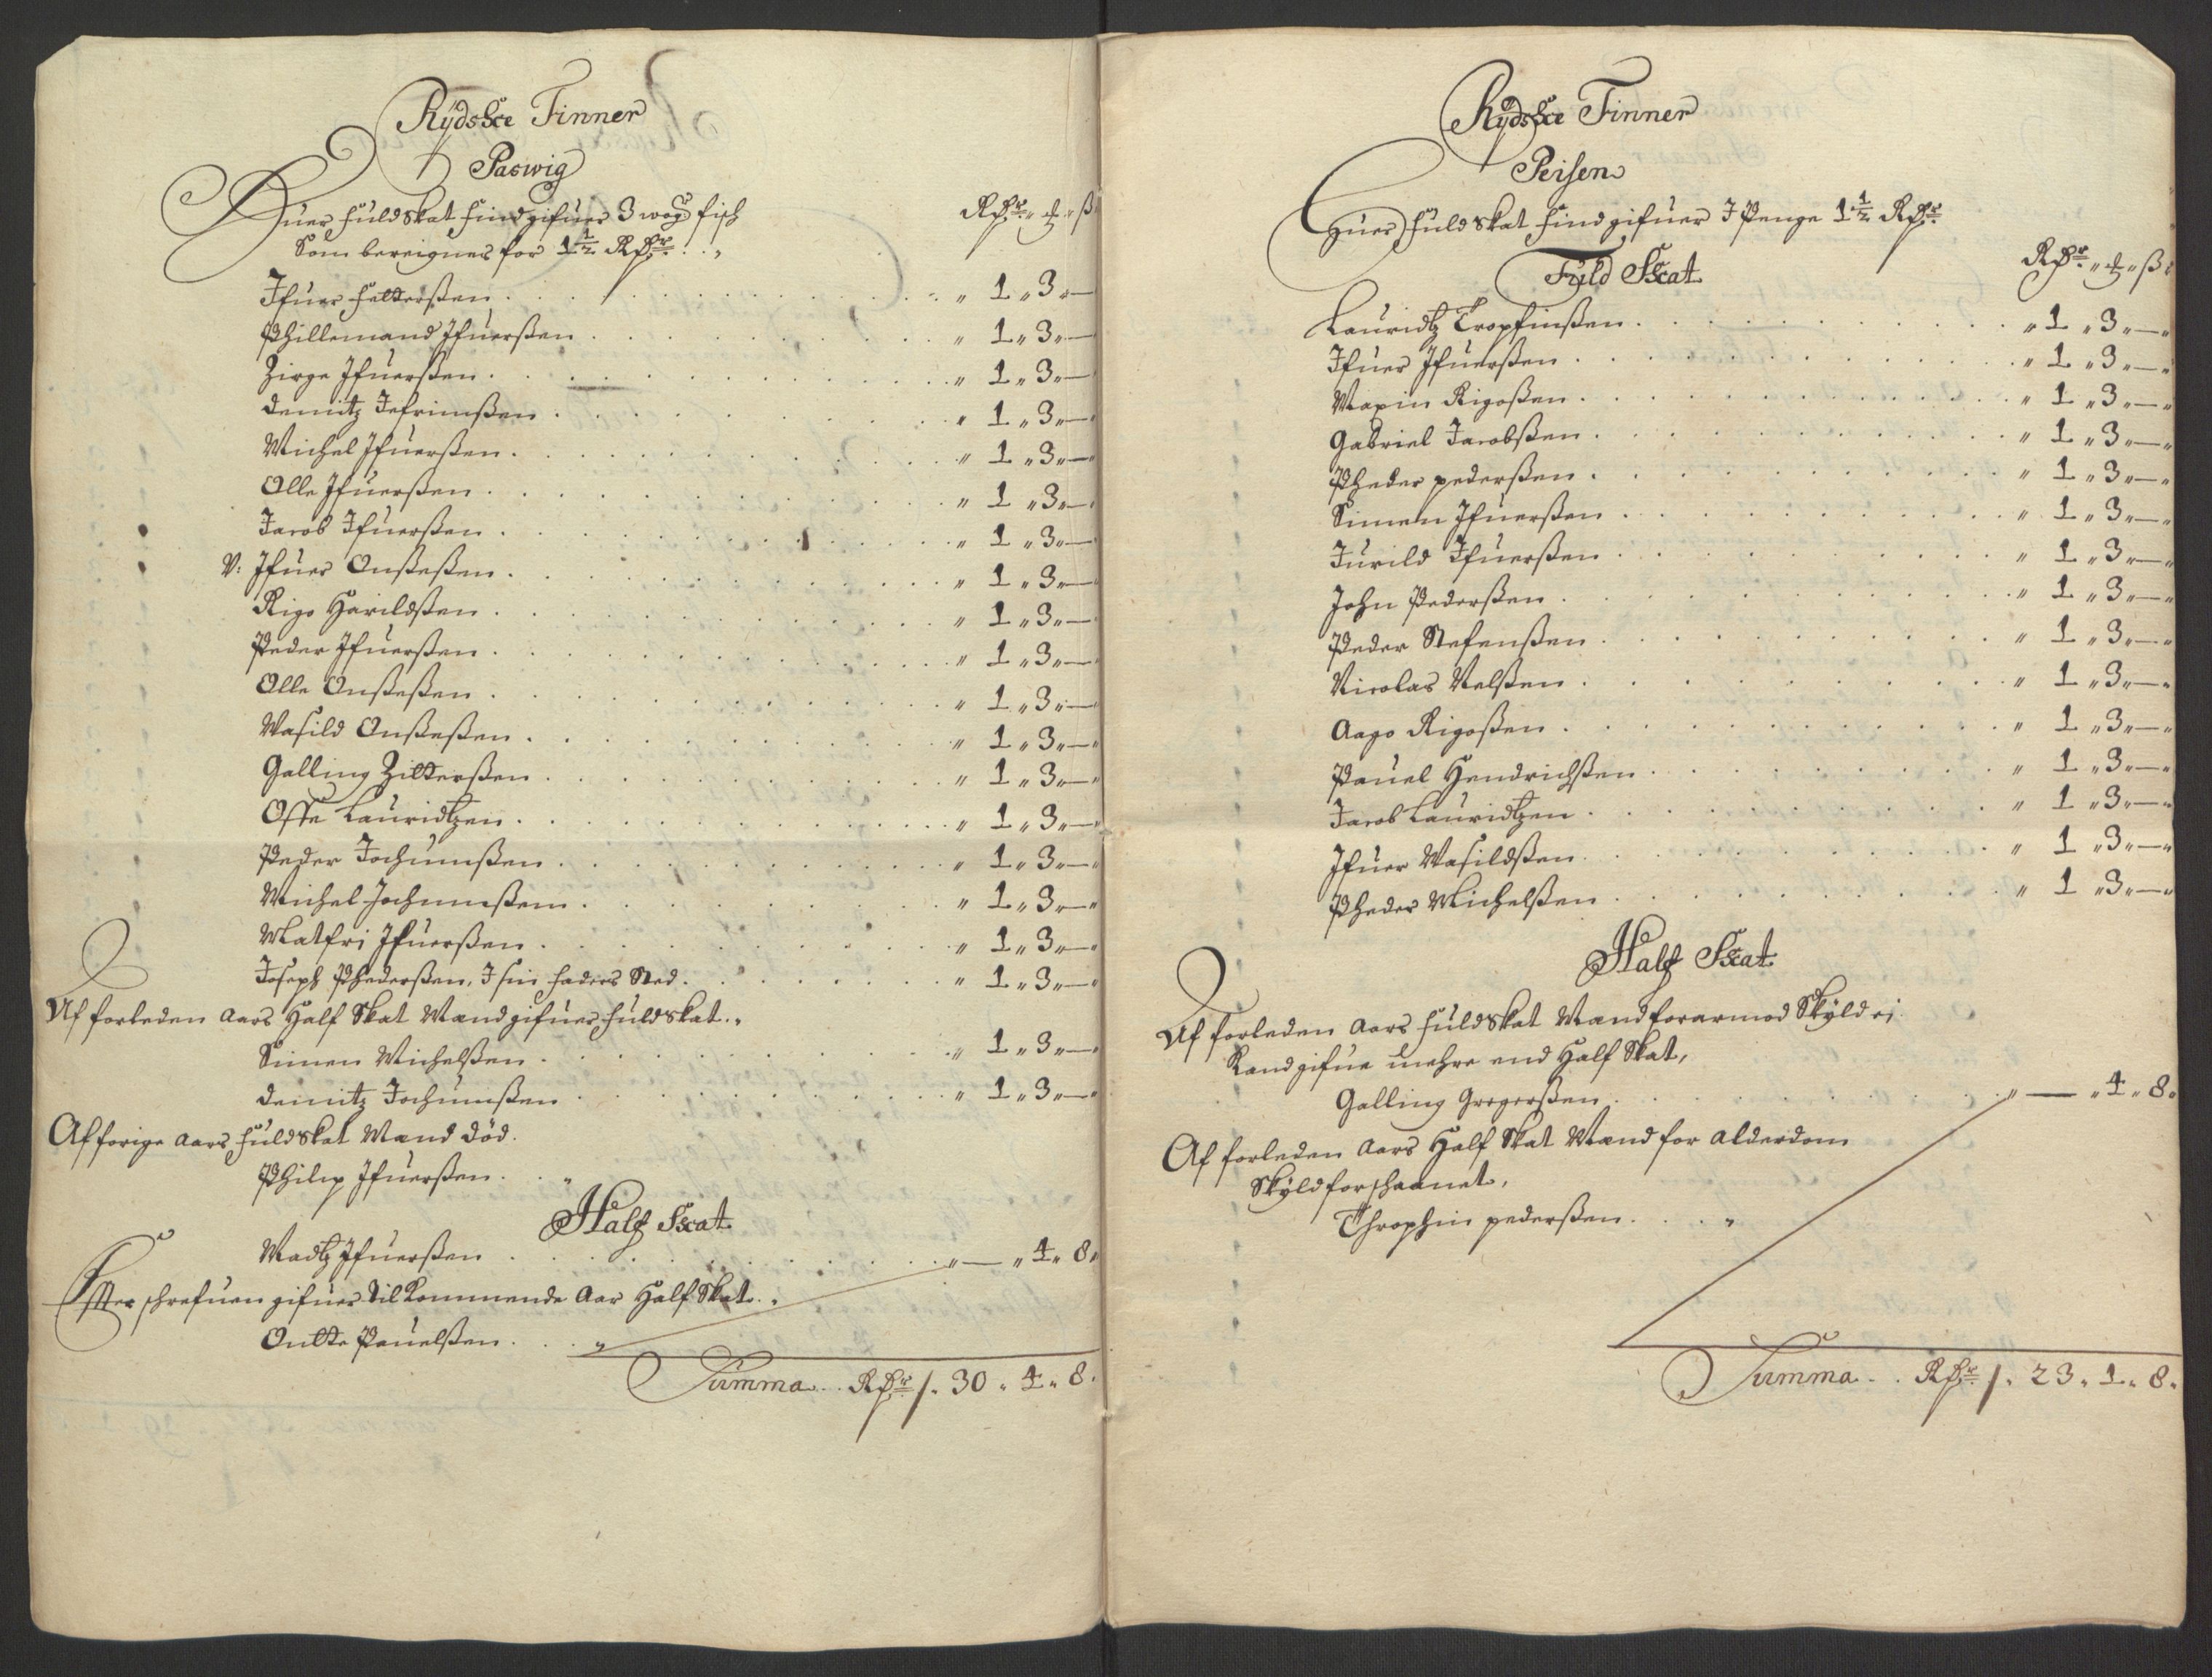 Rÿdsche Finner
Paswig
Huer fuldskat find gifuer 3 wog fisch
Som bereignes for 1½ Rdr . . „
Rdr „ ₰ „ ß
Ifuer felterßen . . . „ 1 „ 3 „ —
Phillemand Ifuerßen . . . „ 1 „ 3 „ —
Zirge Ifuerßen . . . „ 1 „ 3 „ —
Demitz Iefrimßen . . . „ 1 „ 3 „ —
Michel Ifuerßen . . . „ 1 „ 3 „ —
Olle Ifuerßen . . . „ 1 „ 3 „ —
Jacob Ifuerßen . . . „ 1 „ 3 „ —
V: Ifuer Onßeßen . . . „ 1 „ 3 „ —
Rigo Harildßen . . . „ 1 „ 3 „ —
Peder Ifuerßen . . . „ 1 „ 3 „ —
Olle Onßeßen . . . „ 1 „ 3 „ —
Wasild Onßeßen . . . „ 1 „ 3 „ —
Galling Zilderßen . . . „ 1 „ 3 „ —
Offe Lauridtzen . . . „ 1 „ 3 „ —
Peder Jochumßen . . . „ 1 „ 3 „ —
Michel Jochumßem . . . „ 1 „ 3 „ —
Matfri Ifuerßen . . . „ 1 „ 3 „ —
Joseph Phederßen, I sin faders Sted . . . „ 1 „ 3 „ —
Af forleden aars Half Skat Mand gifuer fuldskat . „
Simen Michelßen . . . „ 1 „ 3 „ —
Demitz Jochumßen . . . „ 1 „ 3 „ —
Af forige aars fuldskat Mand död.
Philip Ifuerßen . . „
Half Skat
Madtz Ifuerßen . . . „ — „ 4 „ 8 „
Effter schrefuen gifuer Tilkommende Aar Half Skat . „
Ondte Pauelßen . . „
Summa . . Rdr /. 30 „ 4 „ 8 .
Rÿdsche Finner
Peisen
Huer fuldskat find gifuer I Penge 1½ Rdr
Fuld Skat
Rdr „ ₰ „ ß
Lauridtz Tropfinßen . . . „ 1 „ 3 „ — „
Ifuer Ifuerßen . . . „ 1 „ 3 „ — „
Maxin Rigoßen . . . „ 1 „ 3 „ — „
Gabriel Jacobßen . . . „ 1 „ 3 „ — „
Pheder pederßen . . . „ 1 „ 3 „ — „
Simen Ifuerßen . . . „ 1 „ 3 „ — „
Jurild Ifuerßen . . . „ 1 „ 3 „ — „
John Pederßen . . . „ 1 „ 3 „ — „
Peder Stefenßen . . . „ 1 „ 3 „ — „
Nicolas Nelßen . . . „ 1 „ 3 „ — „
Aago Rigoßen . . . „ 1 „ 3 „ — „
Pauel Hendrichßen . . . „ 1 „ 3 „ — „
Jacob Lauridtzen . . . „ 1 „ 3 „ — „
Ifuer Wasildßen . . . „ 1 „ 3 „ — „
Pheder Michelßen . . . „ 1 „ 3 „ — „
Half Skat
Af forleden aars fuldskat Mand forarmod Skÿld ei
Kand gifue mehre end Half Skat,
Galling Gregerßen . . . „ — „ 4 „ 8 „
Af forleden Aars Half Skat Mand for alderdom
Skÿld forschaanet,
Throphin pederßen . . . „
Summa . . Rdr /. 23 „ 1 „ 8 „